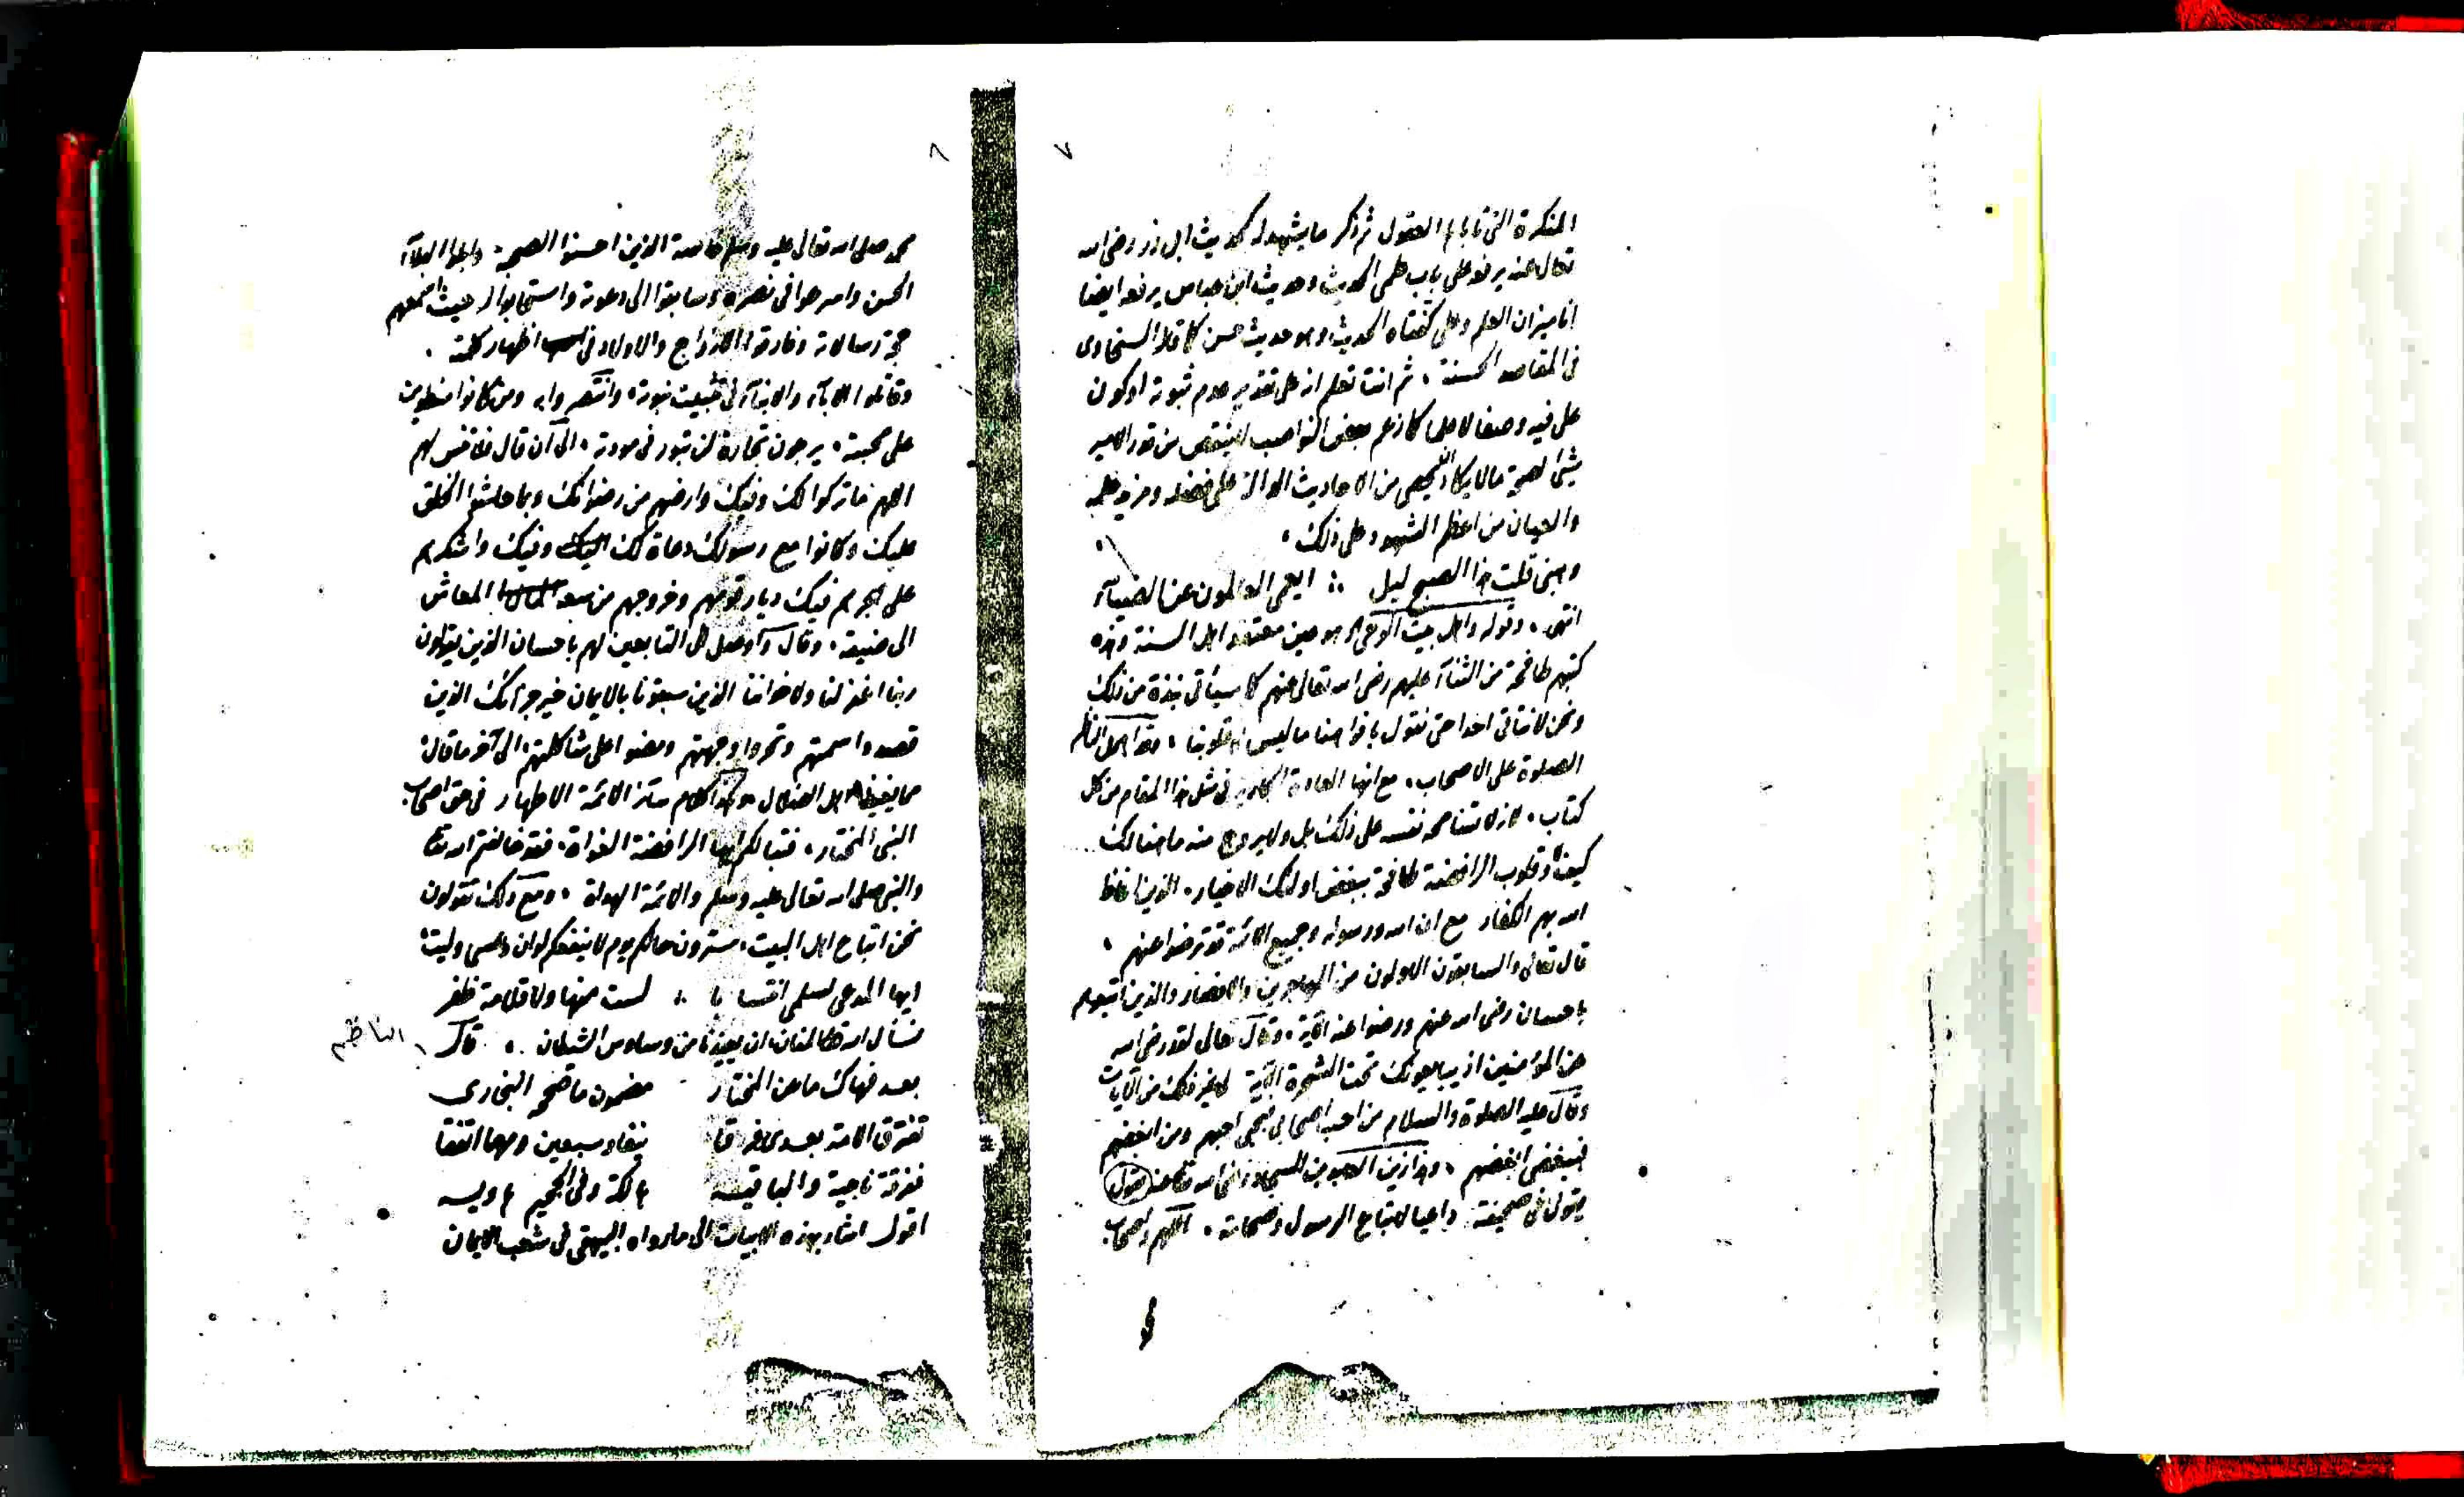 ٧
المنكرة التي تأباها العقول ثم ذكر ما يشهد له كحديث ابى ذر رضى الله
تعالى عنه يرفعه على باب علمى الحديث وحديث ابن عباس يرفعه ايضا
انا ميزان العلم وعلى كفتاه الحديث وهو حديث حسن كما قال السخاوى
فى المقاصد الحسنة ، ثم انت تعلم انه على تقدير عدم ثبوته او كون
على فيه وصفا لا علما كما زعم بعض النواصب لا ينتقص من قدر الامير
شئ لصحة ما لا يكاد يحصى من الاحاديث الدالة على فضله ومزيد علمه
والعيان من اعظم الشهود على ذلك ،
وهبنى قلت هذا الصبح ليل ؞ ايعمى العالمون عن الضيآء
انتهى ، وقوله واهل بيت الوحى الخ هو عين معتقد اهل السنة وهذه
كتبهم طافحة من الثنآء عليهم رضى الله تعالى عنهم كما سيأتى نبذة من ذلك
ونحن لا نتاقى احدا حتى نقول بافواهنا ما ليس فى قلوبنا ، وقد اهمل الناظم
الصلوة على الاصحاب ، مع انها العادة الجارية فى مثل هذا المقام من كل
كتاب ، لانه لا تسامحه نفسه على ذلك بل ولا يروج منه ما هنالك
كيف وقلوب الرافضة طافحة ببغض اولئك الاخيار ، الذين اغاظ
الله بهم الكفار مع ان الله ورسوله وجميع الائمة قد ترضوا عنهم ،
قال تعالى والسابقون الاولون من المهاجرين والانصار والذين اتبعوهم
باحسان رضى الله عنهم ورضوا عنه الآية ، وقال تعالى لقد رضى الله
عن المؤمنين اذ يبايعونك تحت الشجرة الآية لا غير ذلك من الآيات
وقال عليه الصلوة والسلام من احب اصحابى فبحبى احبهم ومن ابغضهم
فببغضى ابغضهم ، وهذا زين العابدين السجاد رضى الله تعالى عنه
يقول فى صحيفته داعيا لاتباع الرسول وصحابته ، اللهم واصحاب
٨
محمد صلى الله تعالى عليه وسلم خاصة الذين احسنوا الصحبة وابلوا البلآء
الحسن واسرعوا فى نصره وسابقوا الى دعوته واستجابوا له حيث اسمعهم
حجة رسالاته وفارقوا الازواج والاولاد فى اظهار كلمته ،
وقاتلوا الابآء والابنآء فى تثبيت نبوته وانتصروا به ومن كانوا منطوين
على محبته ، يرجون تجارة لن تبور فى مودته ، الى ان قال فلا تنس لهم
اللهم ما تركوا لك وفيك وارضهم من رضوانك وبما حاشوا الخلق
عليك وكانوا مع رسولك دعاة لك اليك وفيك واشكرهم
على هجرهم فيك ديار قومهم وخروجهم من سعة المعاش
الى ضيقه ، وقال واوصل الى التابعين لهم باحسان الذين يقولون
ربنا اغفر لنا ولاخواننا الذين سبقونا بالايمان خير جزائك الذين
قصدوا سمتهم وتحروا وجهتهم ومضوا على شاكلتهم الى آخر ما قال
مما يغيظ اهل الضلال وكذا كلام سائر الائمة الاطهار فى حق اصحاب
النبى المختار ، فتبا لكم ايها الرافضة الغواة ، فقد خالفتم الله تعالى
والنبى صلى الله تعالى عليه وسلم والائمة الهداة ، ومع ذلك تقولون
نحن اتباع اهل البيت ، سترون حالكم يوم لا ينفعكم لو ان وعسى وليت
ايها المدعى لسلمى انتسابا ؞ لست منها ولا قلامة ظفر
نسأل الله تعالى المنان ان يعيذنا من وساوس الشيطان ، قال الناظم
بعد فهاك ما عن المختار مضمون ما صححه البخارى
تفترق الامة بعدى فرقا نيفا وسبعين ومهما اتفقا
ففرقة ناجية والباقيه هالكة وفى الجحيم هاويه
اقول اشار بهذه الابيات الى ما رواه البيهقى فى شعب الايمان